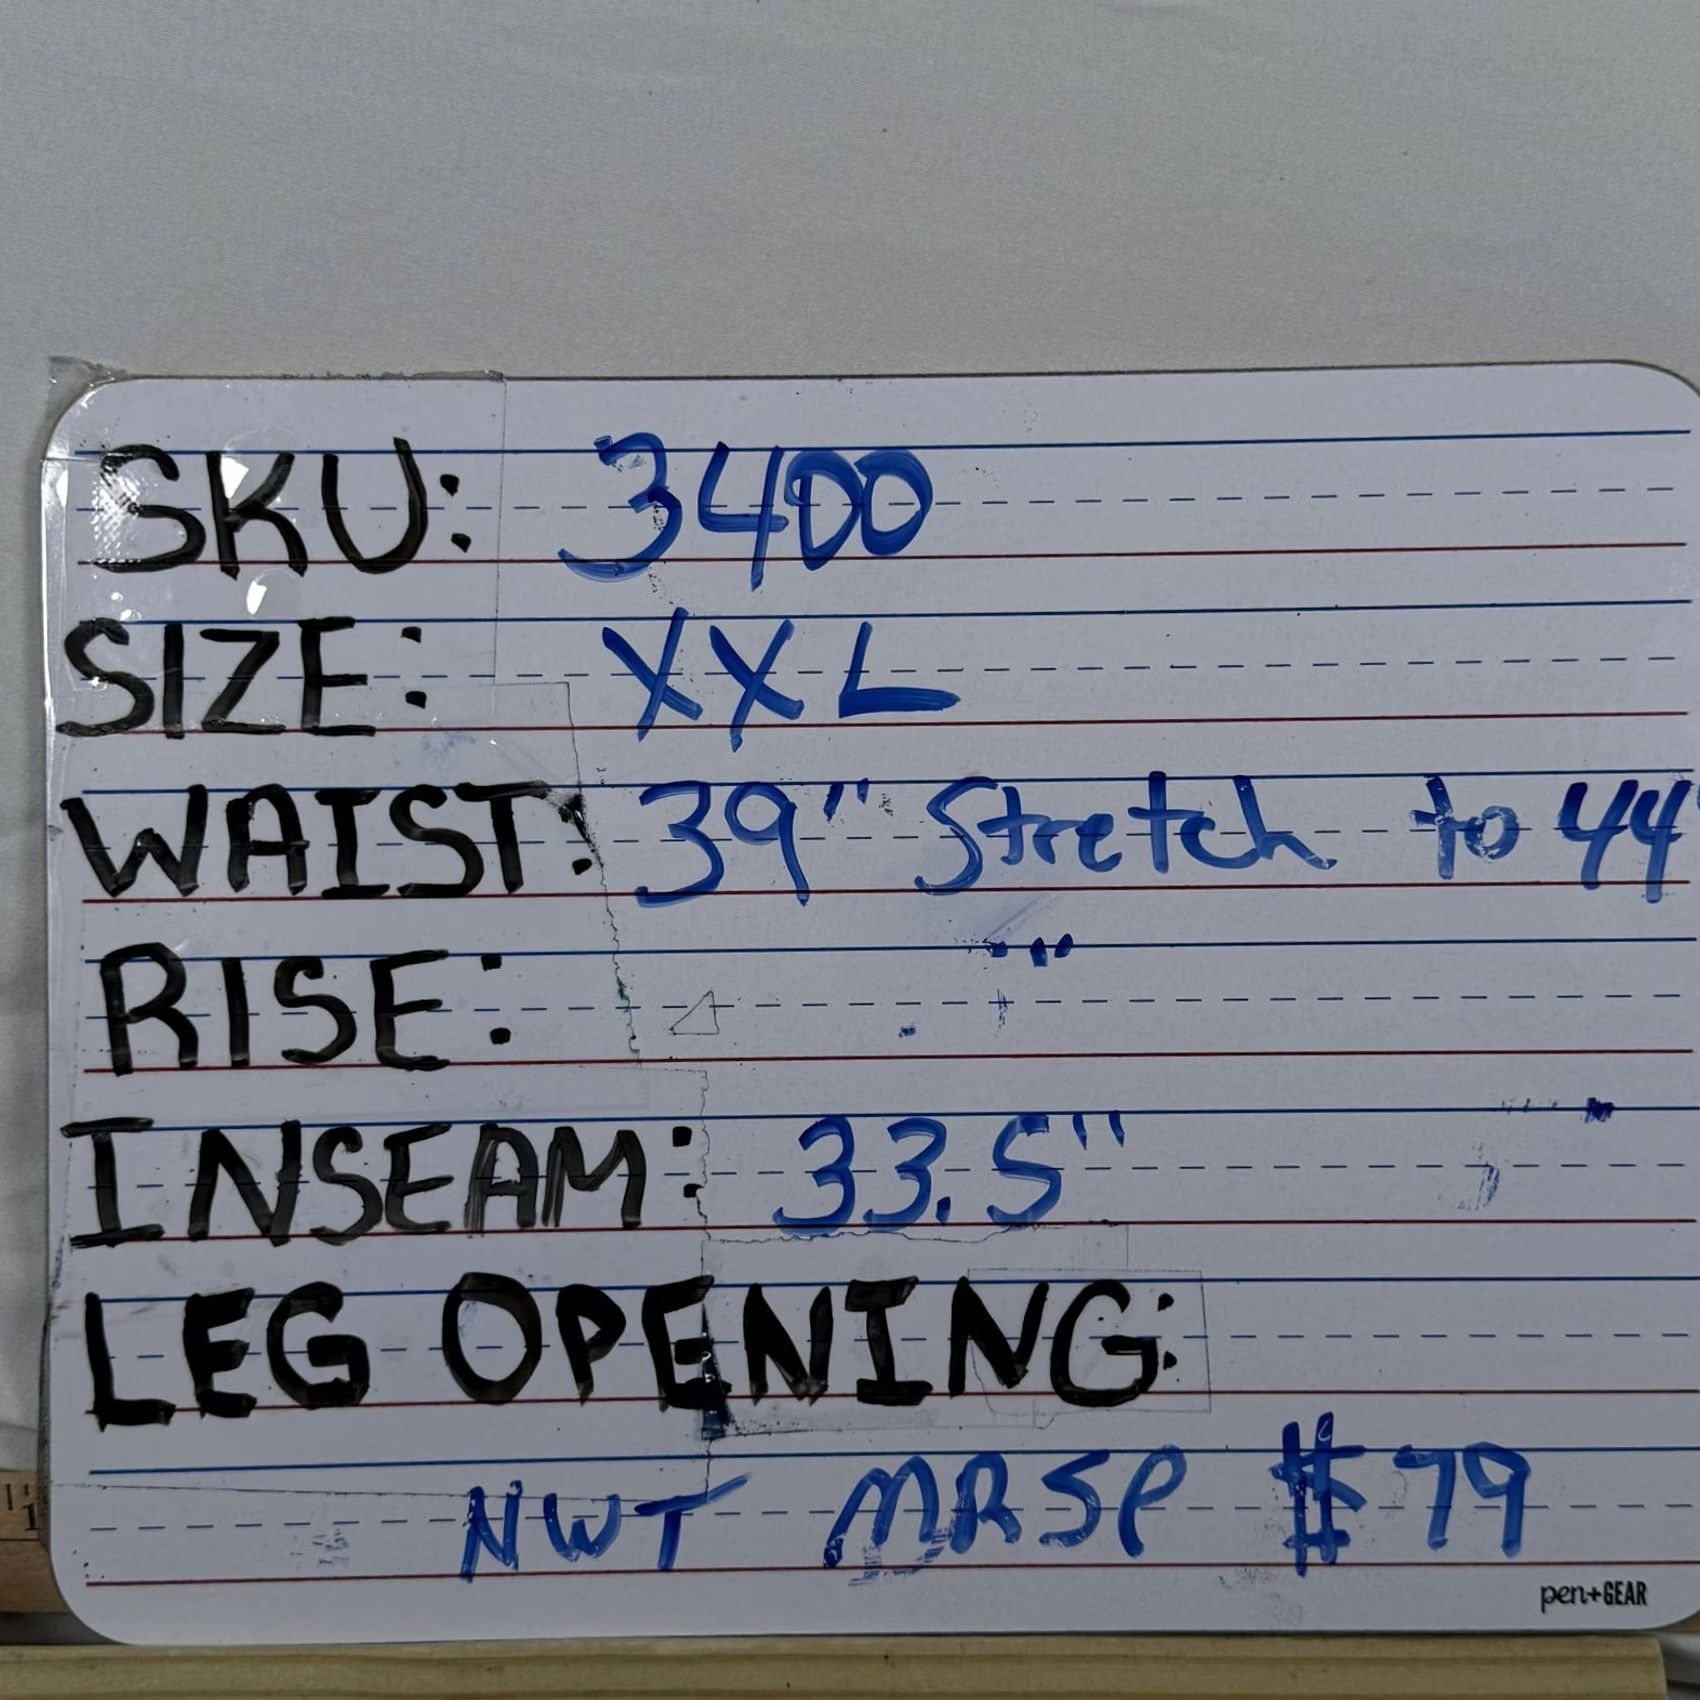 SKU: 3400
SIZE: XXL
WAIST: 39" Stretch to 44"
RISE:
INSEAM: 33.5"
LEG OPENING:
NWT MRSP $79
pen+GEAR